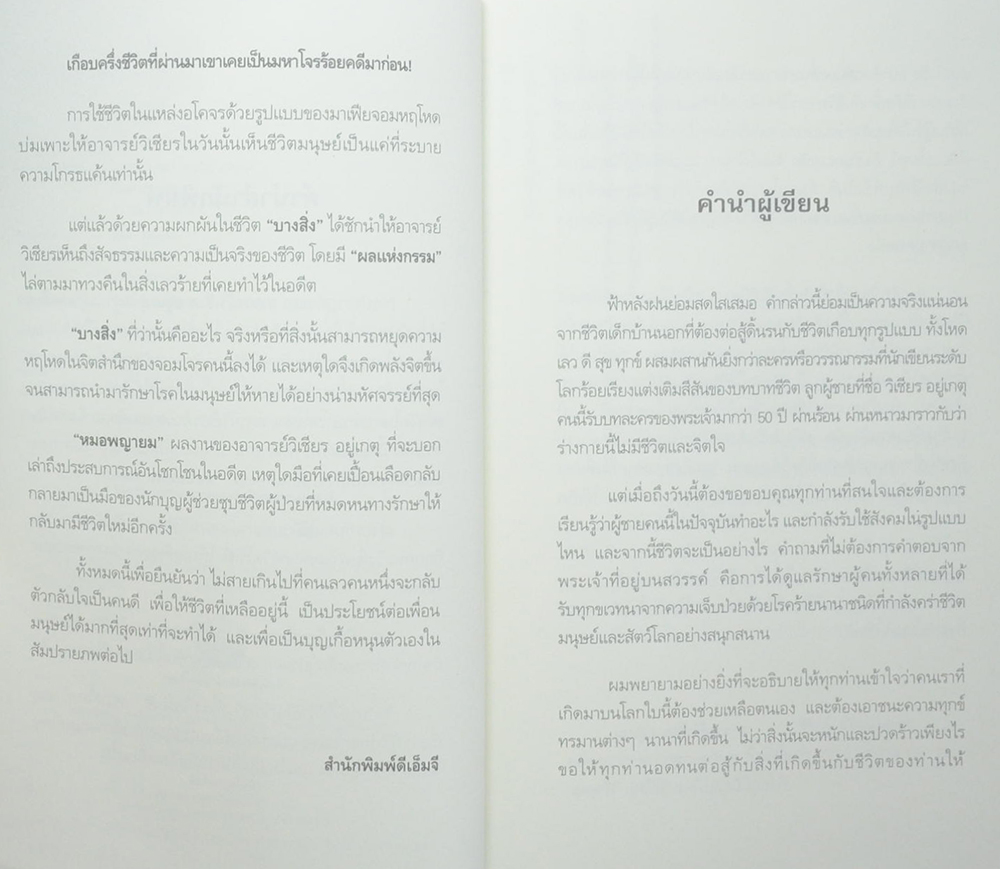 เกือบครึ่งชีวิตที่ผ่านมาเขาเคยเป็นมหาโจรร้อยคดีมาก่อน!
การใช้ชีวิตในแหล่งอโคจรด้วยรูปแบบของมาเฟียจอมหฤโหด
บ่มเพาะให้อาจารย์วิเชียรในวันนั้นเห็นชีวิตมนุษย์เป็นแค่ที่ระบาย
ความโกรธแค้นเท่านั้น
แต่แล้วด้วยความผกผันในชีวิต “บางสิ่ง” ได้ชักนำให้อาจารย์
วิเชียรเห็นถึงสัจธรรมและความเป็นจริงของชีวิต โดยมี “ผลแห่งกรรม”
ไล่ตามมาทวงคืนในสิ่งเลวร้ายที่เคยทำไว้ในอดีต
“บางสิ่ง” ที่ว่านั้นคืออะไร จริงหรือที่สิ่งนั้นสามารถหยุดความ
หฤโหดในจิตสำนึกของจอมโจรคนนี้ลงได้ และเหตุใดจึงเกิดพลังจิตขึ้น
จนสามารถนำมารักษาโรคในมนุษย์ให้หายได้อย่างน่ามหัศจรรย์ที่สุด
“หมอพญายม” ผลงานของอาจารย์วิเชียร อยู่เกตุ ที่จะบอก
เล่าถึงประสบการณ์อันโชกโชนในอดีต เหตุใดมือที่เคยเปื้อนเลือดกลับ
กลายมาเป็นมือของนักบุญผู้ช่วยชุบชีวิตผู้ป่วยที่หมดหนทางรักษาให้
กลับมามีชีวิตใหม่อีกครั้ง
ทั้งหมดนี้เพื่อยืนยันว่า ไม่สายเกินไปที่คนเลวคนหนึ่งจะกลับ
ตัวกลับใจเป็นคนดี เพื่อให้ชีวิตที่เหลืออยู่นี้ เป็นประโยชน์ต่อเพื่อน
มนุษย์ได้มากที่สุดเท่าที่จะทำได้ และเพื่อเป็นบุญเกื้อหนุนตัวเองใน
สัมปรายภพต่อไป
สำนักพิมพ์ดีเอ็มจี
คำนำผู้เขียน
ฟ้าหลังฝนย่อมสดใสเสมอ คำกล่าวนี้ย่อมเป็นความจริงแน่นอน
จากชีวิตเด็กบ้านนอกที่ต้องต่อสู้ดิ้นรนกับชีวิตเกือบทุกรูปแบบ ทั้งโหด
เลว ดี สุข ทุกข์ ผสมผสานกันยิ่งกว่าละครหรือวรรณกรรมที่นักเขียนระดับ
โลกร้อยเรียงแต่งเติมสีสันของบทบาทชีวิต ลูกผู้ชายที่ชื่อ วิเชียร อยู่เกตุ
คนนี้รับบทละครของพระเจ้ามากว่า 50 ปี ผ่านร้อน ผ่านหนาวมาราวกับว่า
ร่างกายนี้ไม่มีชีวิตและจิตใจ
แต่เมื่อถึงวันนี้ต้องขอขอบคุณทุกท่านที่สนใจและต้องการ
เรียนรู้ว่าผู้ชายคนนี้ในปัจจุบันทำอะไร และกำลังรับใช้สังคมในรูปแบบ
ไหน และจากนี้ชีวิตจะเป็นอย่างไร คำถามที่ไม่ต้องการคำตอบจาก
พระเจ้าที่อยู่บนสวรรค์ คือการได้ดูแลรักษาผู้คนทั้งหลายที่ได้
รับทุกขเวทนาจากความเจ็บป่วยด้วยโรคร้ายนานาชนิดที่กำลังคร่าชีวิต
มนุษย์และสัตว์โลกอย่างสนุกสนาน
ผมพยายามอย่างยิ่งที่จะอธิบายให้ทุกท่านเข้าใจว่าคนเราที่
เกิดมาบนโลกใบนี้ต้องช่วยเหลือตนเอง และต้องเอาชนะความทุกข์
ทรมานต่างๆ นานาที่เกิดขึ้น ไม่ว่าสิ่งนั้นจะหนักและปวดร้าวเพียงไร
ขอให้ทุกท่านอดทนต่อสู้กับสิ่งที่เกิดขึ้นกับชีวิตของท่านให้